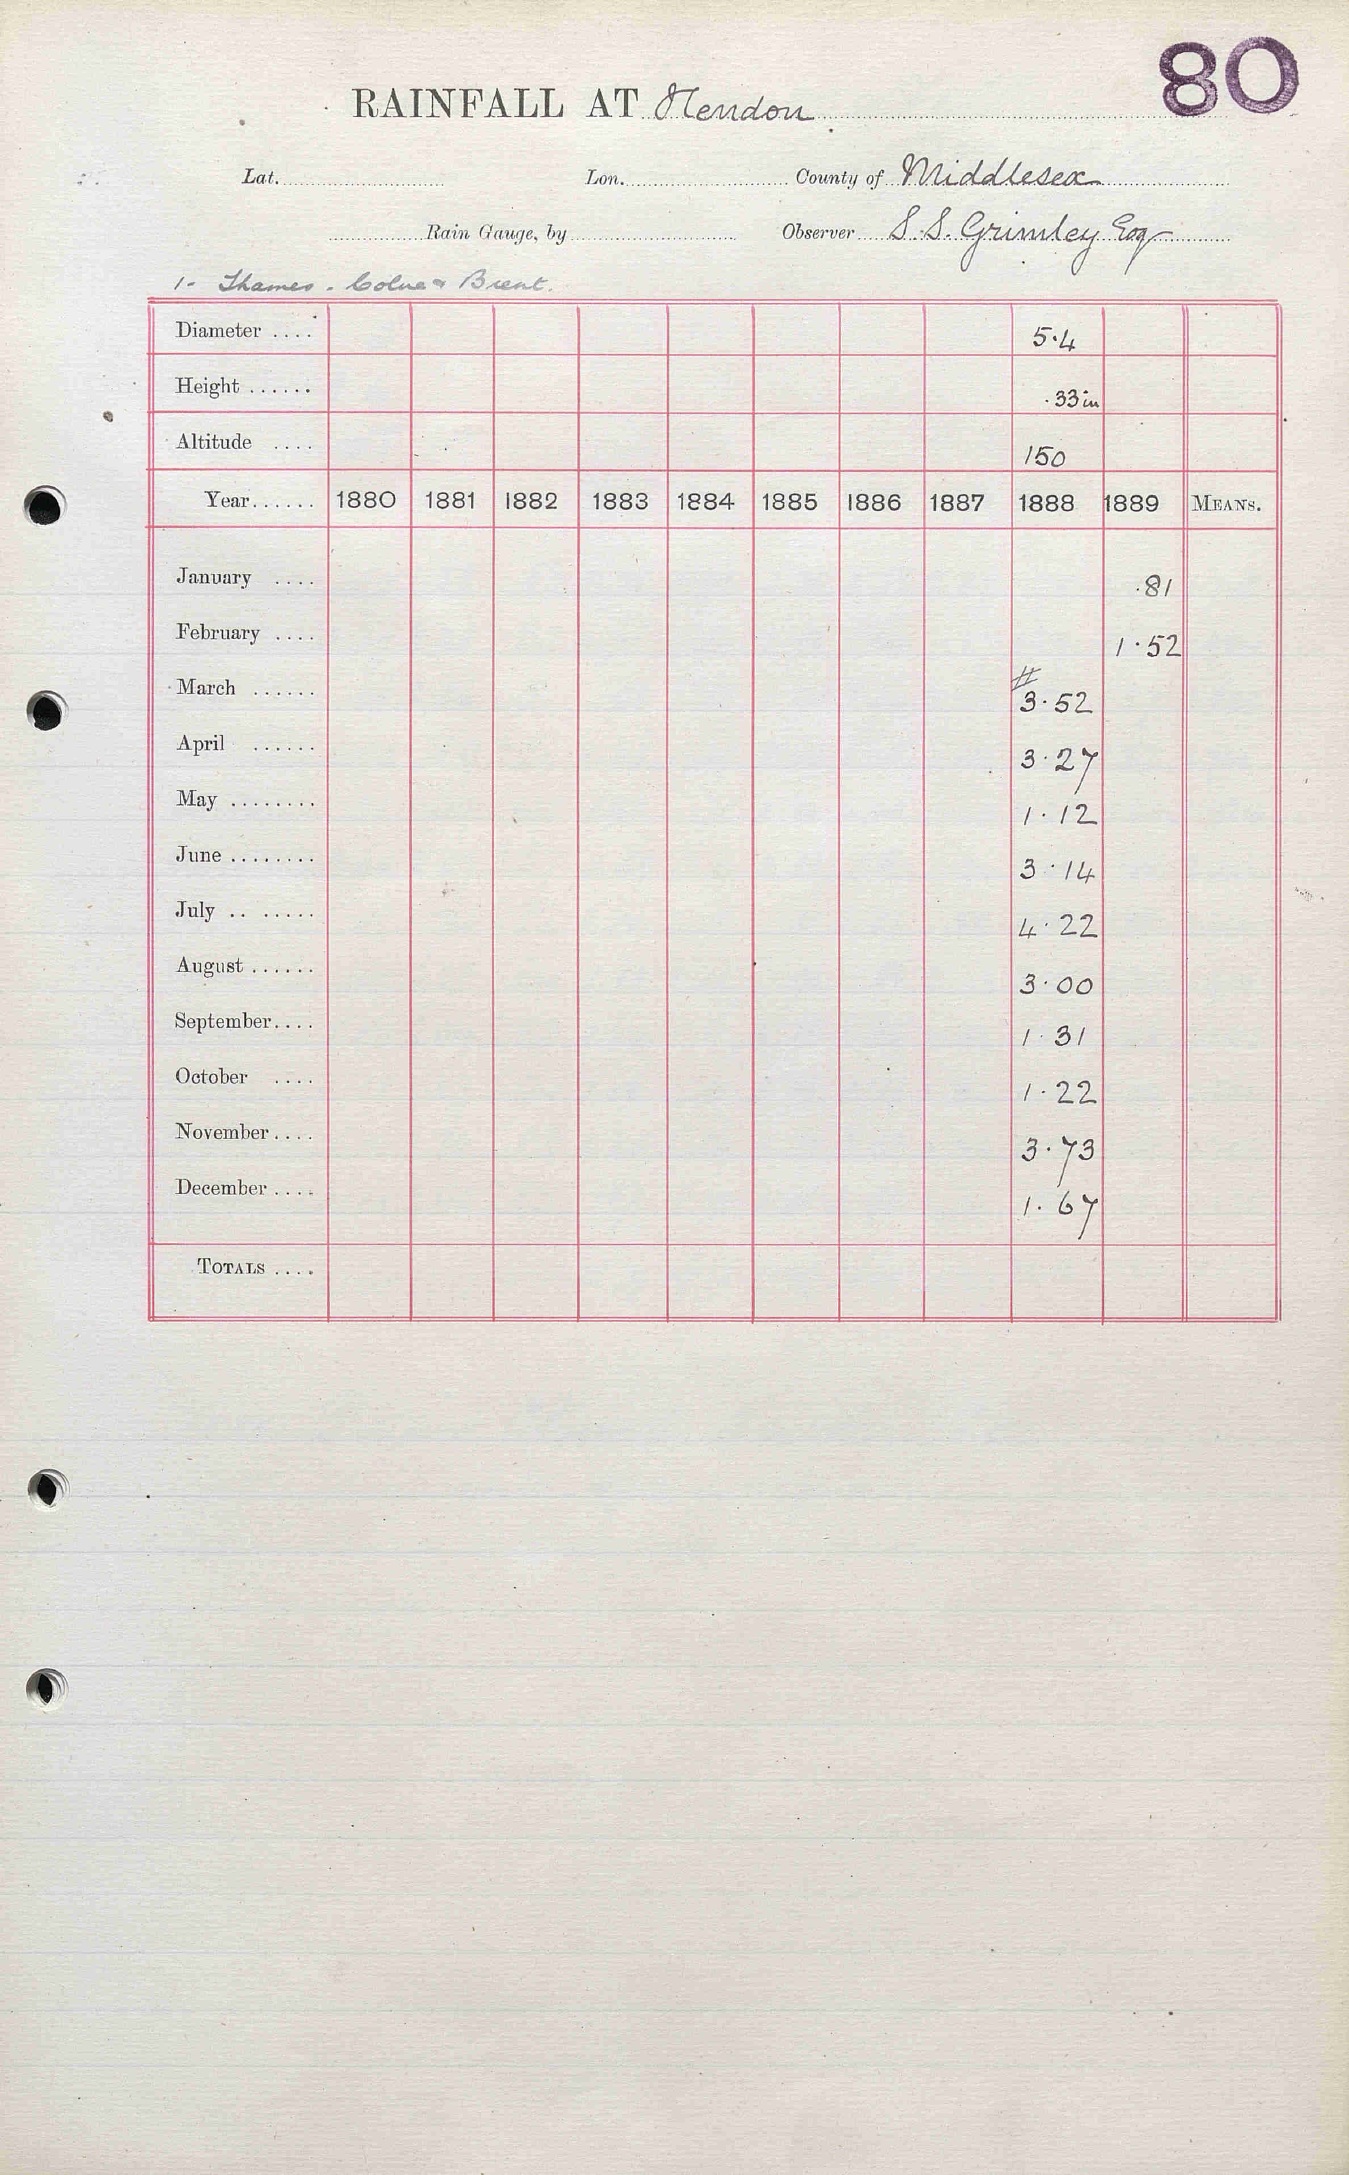 80
RAINFALL AT Hendon
Lat. Lon. County of Middlesex
Rain Gauge, by Observer S. S. Grimley Esq
1- Thames - Colne & Brent.
Diameter .... 5.4
Height ...... .33 in
Altitude .... 150
Year...... 1880 1881 1882 1883 1884 1885 1886 1887 1888 1889 MEANS.
January .... .81
February .... 1.52
March ...... # 3.52
April ...... 3.27
May ........ 1.12
June ........ 3.14
July .. ..... 4.22
August ...... 3.00
September.... 1.31
October .... 1.22
November.... 3.73
December .... 1.67
TOTALS ....